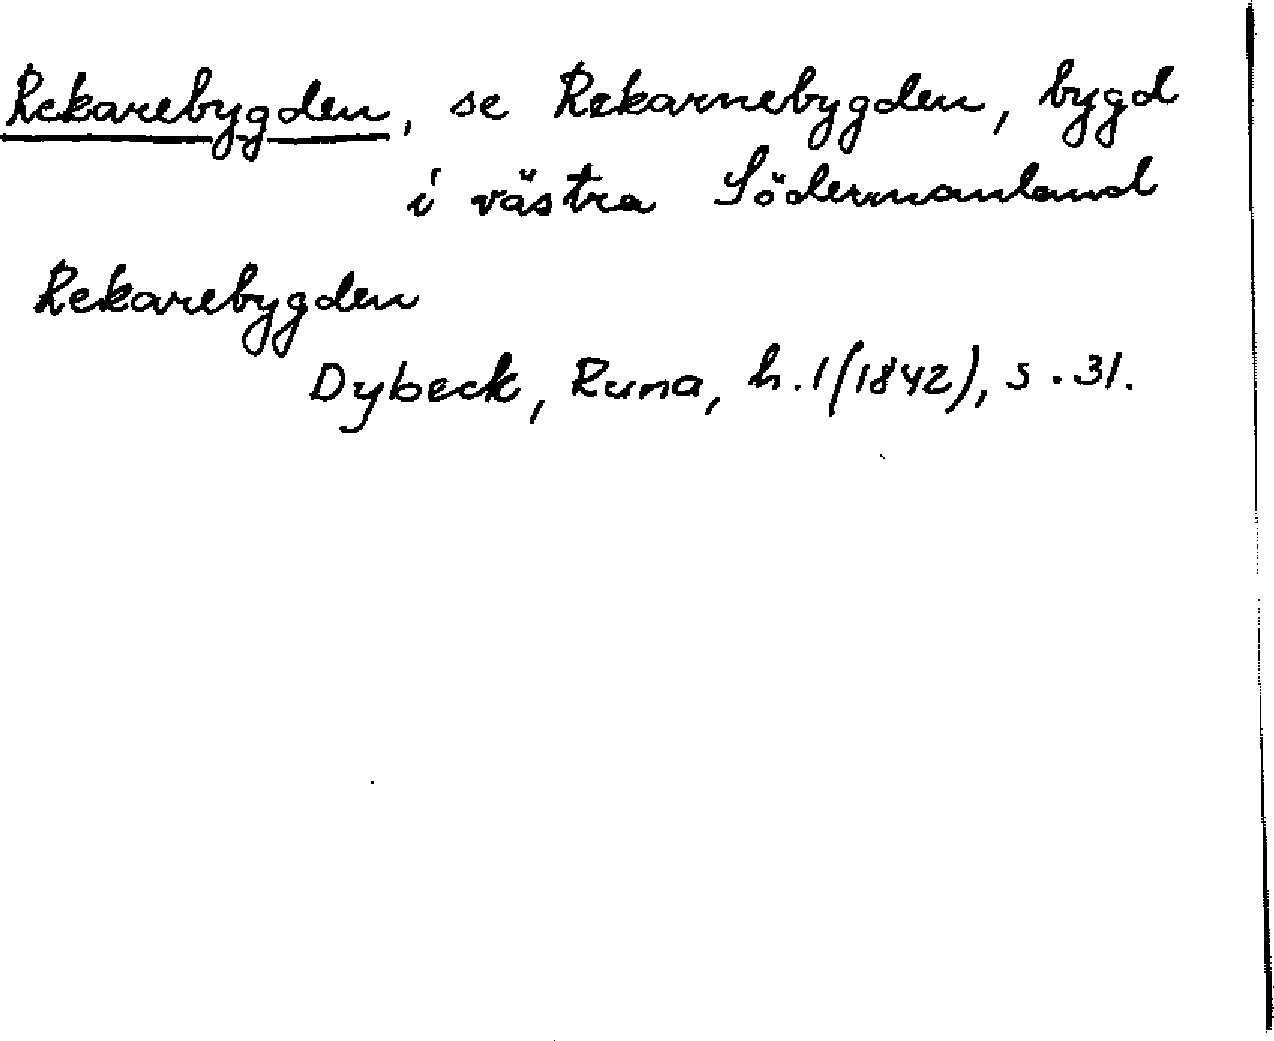 Rekarebygden, se Rekarnebygden, bygd
i västra Södermanland
Rekarebygden
Dybeck, Runa, h. 1 (1842), s. 31.